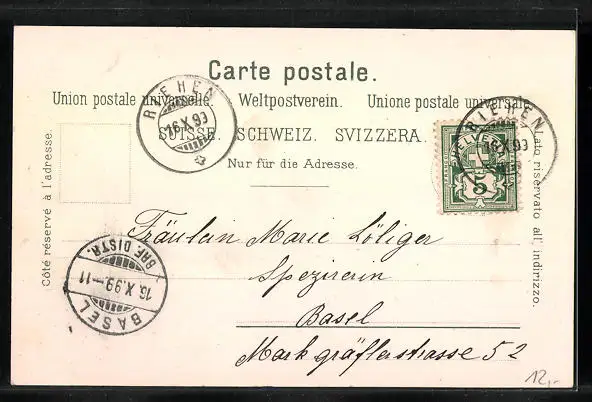 Carte postale.
Union postale universelle. Weltpostverein. Unione postale universale.
SUISSE. SCHWEIZ. SVIZZERA.
Nur für die Adresse.
Côté réservé à l'adresse.
Lato riservato all' indirizzo.
RIEHEN
16.X.99
RIEHEN
16.X.99
HELVETIA
5
BASEL
16.X.99.-11
BRF. DISTR.
Fräulein Marie Löliger
Spezirerin
Basel
Markgräflerstrasse 52
12,-